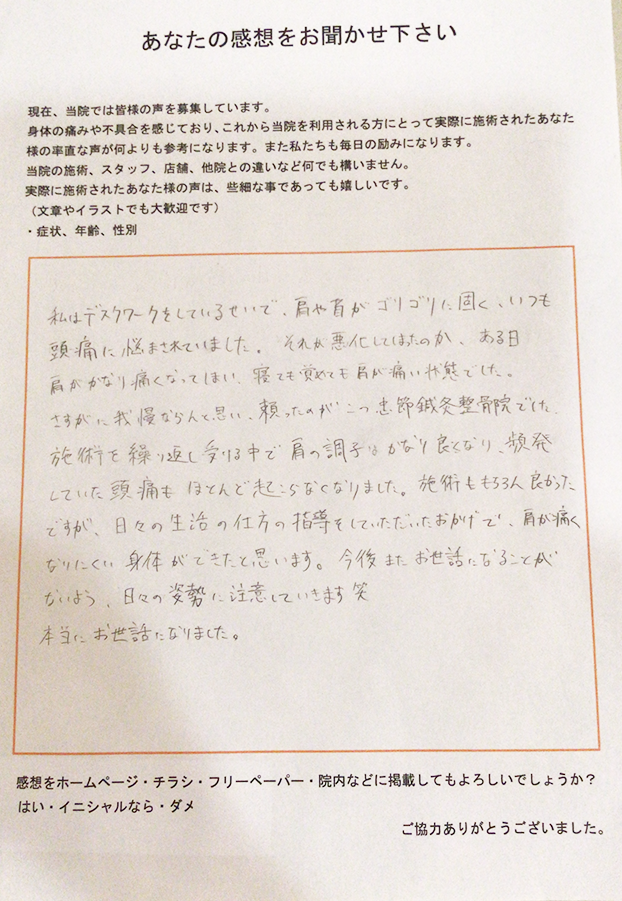 あなたの感想をお聞かせ下さい
現在、当院では皆様の声を募集しています。
身体の痛みや不具合を感じており、これから当院を利用される方にとって実際に施術されたあなた
様の率直な声が何よりも参考になります。また私たちも毎日の励みになります。
当院の施術、スタッフ、店舗、他院との違いなど何でも構いません。
実際に施術されたあなた様の声は、些細な事であっても嬉しいです。
（文章やイラストでも大歓迎です）
・症状、年齢、性別
私はデスクワークをしているせいで、肩や首がゴリゴリに固く、いつも
頭痛に悩まされていました。それが悪化してしまったのか、ある日
肩がかなり痛くなってしまい、寝ても覚めても肩が痛い状態でした。
さすがに我慢ならんと思い、頼ったのがこつ忠節鍼灸整骨院でした。
施術を繰り返し受ける中で肩の調子はかなり良くなり、頻発
していた頭痛もほとんど起こらなくなりました。施術ももちろん良かった
ですが、日々の生活の仕方の指導をしていただいたおかげで、肩が痛く
なりにくい身体ができたと思います。今後またお世話になることが
ないよう、日々の姿勢に注意していきます笑
本当にお世話になりました。
感想をホームページ・チラシ・フリーペーパー・院内などに掲載してもよろしいでしょうか？
はい・イニシャルなら・ダメ
ご協力ありがとうございました。